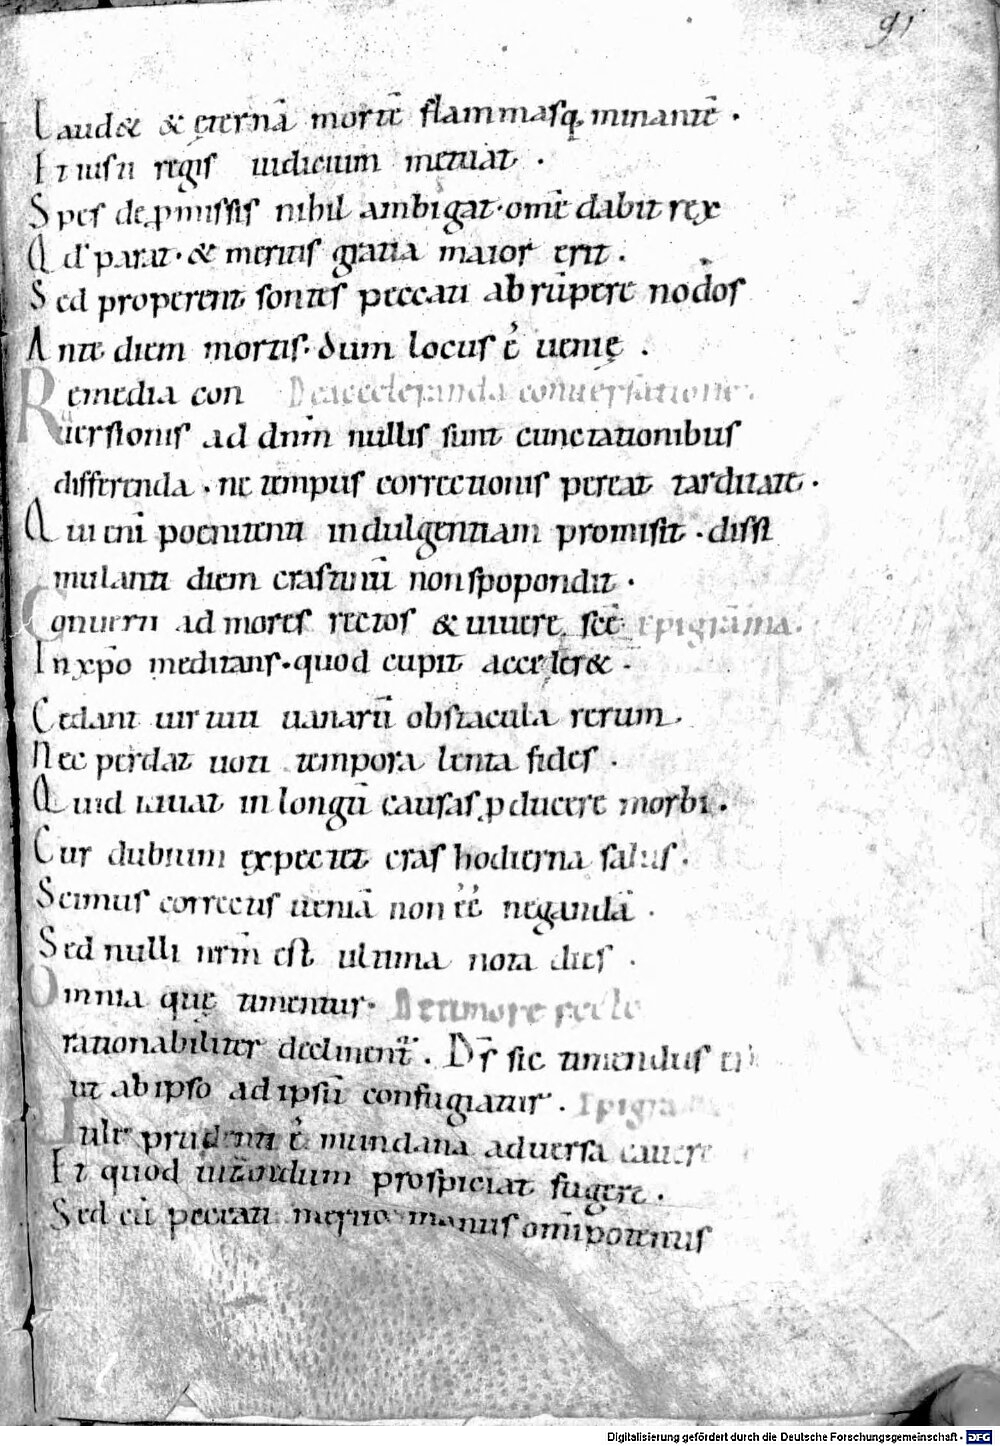 91
Laud& & ęternā mortē flammasq; minantē.
Et iusti regis iudicium metuat.
Spes de ꝓmissis nihil ambigat. omē dabit rex
Qd' parat. & meritis gratia maior erit.
Sed properent sontes peccati abrūpere nodos
Ante diem mortis. dum locus ē uenię.
Remedia con De acceleranda conuersatione.
uersionis ad dnm̄ nullis sunt cunctationibus
differenda. ne tempus correctionis pereat tarditate.
Qui eni penitenti indulgentiam promisit. dissi
mulanti diem crastinū non spopondit.
Conuerti ad mores rectos & uiuere scē Epigrāma.
In xp̄o meditans. quod cupit acceler&.
Cedant uirtuti uanarū obstacula rerum.
Nec perdat uoti tempora lenta fides.
Quid iuuat in longū causas ꝓducere morbi.
Cur dubium expectet cras hodierna salus.
Scimus correctis ueniā non eē negandā.
Sed nulli nrm̄ est ultima nota dies.
Omnia quę timentur. De timore
rationabiliter declinent'. Ds̄ sic timendus
ut ab ipso ad ipsū confugiatur. Epigra
Uult prudenti ē mundana aduersa cauere
Et quod uitandum prospiciat fugere.
Sed cū peccati merito manus omīpotentis
Digitalisierung gefördert durch die Deutsche Forschungsgemeinschaft - DFG